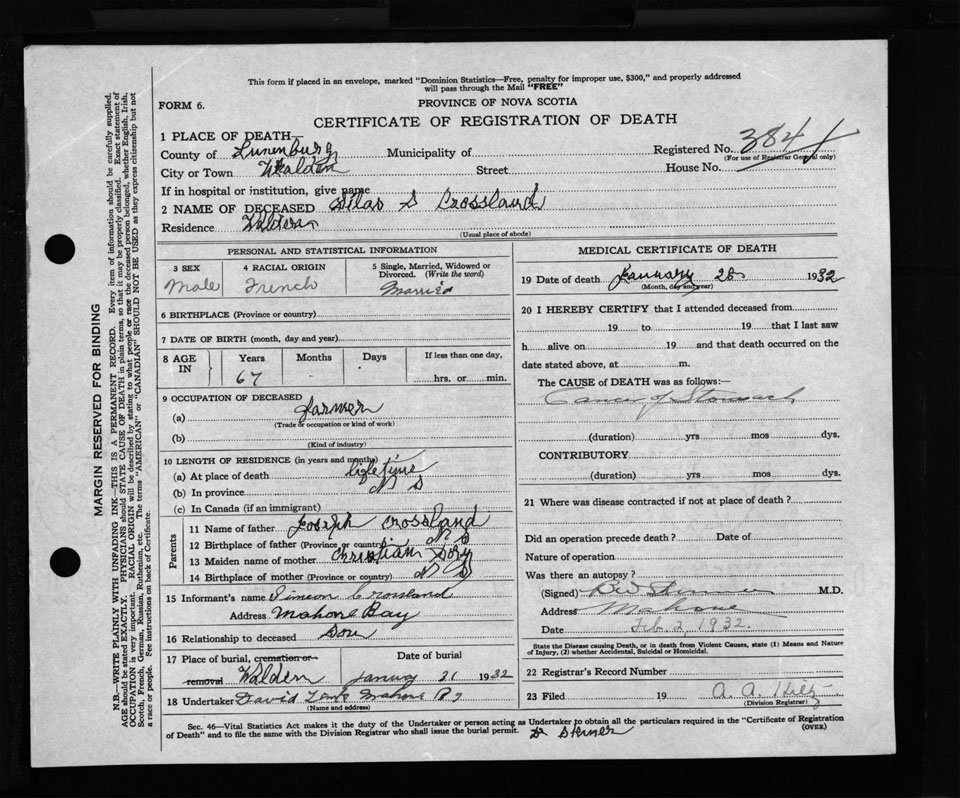 This form if placed in an envelope, marked "Dominion Statistics—Free, penalty for improper use, $300," and properly addressed
will pass through the Mail "FREE"
FORM 6.
PROVINCE OF NOVA SCOTIA
CERTIFICATE OF REGISTRATION OF DEATH
1 PLACE OF DEATH—
County of Lunenburg Municipality of Registered No. 384
(For use of Registrar General only)
City or Town Walden Street House No.
If in hospital or institution, give name
2 NAME OF DECEASED Silas S Crossland
Residence Walden
(Usual place of abode)
PERSONAL AND STATISTICAL INFORMATION
3 SEX
Male
4 RACIAL ORIGIN
French
5 Single, Married, Widowed or
Divorced. (Write the word)
Married
6 BIRTHPLACE (Province or country)
7 DATE OF BIRTH (month, day and year)
8 AGE IN
Years 67
Months -
Days
If less than one day,
hrs. or min.
9 OCCUPATION OF DECEASED
(a) farmer
(Trade or occupation or kind of work)
(b)
(Kind of industry)
10 LENGTH OF RESIDENCE (in years and months)
(a) At place of death life time
(b) In province N S
(c) In Canada (if an immigrant)
Parents
11 Name of father Joseph Crossland
12 Birthplace of father (Province or country) N S
13 Maiden name of mother Christian Dory
14 Birthplace of mother (Province or country) N S
15 Informant's name Simeon Crossland
Address Mahone Bay
16 Relationship to deceased Son
17 Place of burial, cremation or
removal Walden
Date of burial
January 31 1932
18 Undertaker David Mahone By
(Name and address)
MEDICAL CERTIFICATE OF DEATH
19 Date of death January 28 1932
(Month, day and year)
20 I HEREBY CERTIFY that I attended deceased from
19 to 19 that I last saw
h alive on 19 and that death occurred on the
date stated above, at m.
The CAUSE of DEATH was as follows:—
Cancer of Stomach
(duration) yrs mos dys.
CONTRIBUTORY
(duration) yrs mos dys.
21 Where was disease contracted if not at place of death?
Did an operation precede death? Date of
Nature of operation
Was there an autopsy?
(Signed) M.D.
Address Mahone
Date Feb. 2, 1932.
State the Disease causing Death, or in death from Violent Causes, state (1) Means and Nature
of Injury, (2) whether Accidental, Suicidal or Homicidal.
22 Registrar's Record Number
23 Filed 19 A. A. Hiltz
(Division Registrar)
Sec. 46—Vital Statistics Act makes it the duty of the Undertaker or person acting as Undertaker to obtain all the particulars required in the "Certificate of Registration
of Death" and to file the same with the Division Registrar who shall issue the burial permit.
(OVER)
Dr
MARGIN RESERVED FOR BINDING
N.B.—WRITE PLAINLY WITH UNFADING INK—THIS IS A PERMANENT RECORD. Every item of information should be carefully supplied.
AGE should be stated EXACTLY. PHYSICIANS should STATE CAUSE OF DEATH in plain terms, so that it may be properly classified. Exact statement of
OCCUPATION is very important. RACIAL ORIGIN will be described by stating to what people or race the deceased person belonged, whether English, Irish,
Scotch, French, German, Russian, Ruthenian, etc. The terms "AMERICAN" or "CANADIAN" SHOULD NOT BE USED as they express citizenship but not
a race or people. See instructions on back of Certificate.